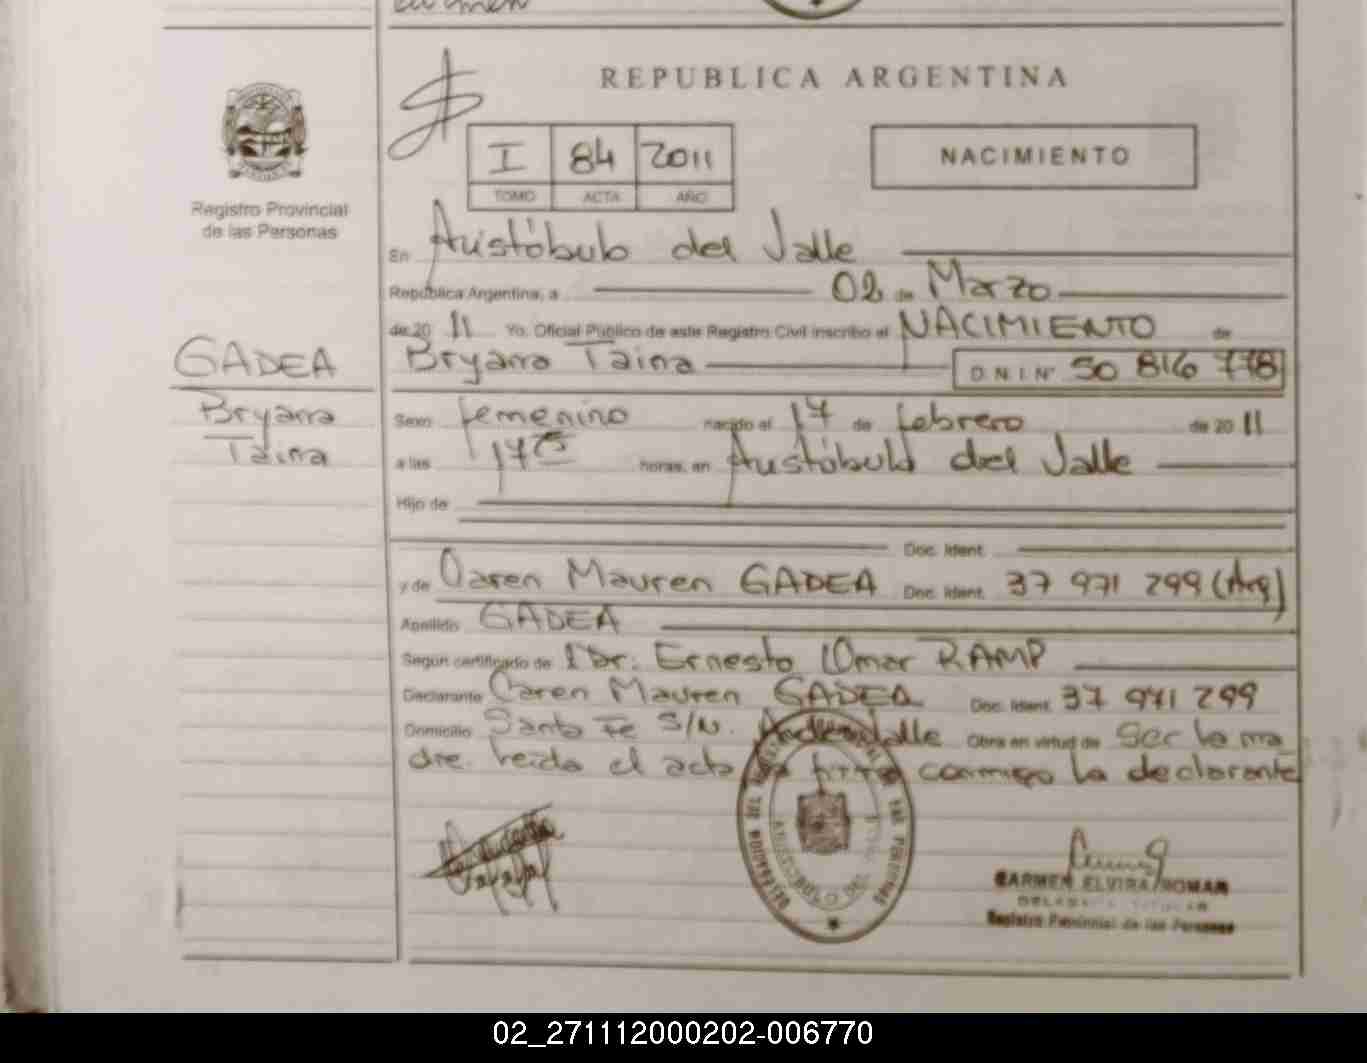 REPUBLICA ARGENTINA
I 84 2011
TOMO ACTA AÑO
NACIMIENTO
Registro Provincial
de las Personas
En Aristóbulo del Valle
República Argentina, a 02 de Marzo
de 20 11 Yo, Oficial Público de este Registro Civil inscribo el NACIMIENTO de
Bryana Taina D.N.I. Nº 50 816 778
GADEA
Bryana
Taina
Sexo femenino nacido el 17 de febrero de 20 11
a las 17 horas, en Aristóbulo del Valle
Hijo de
Doc. Ident.
y de Caren Mauren GADEA Doc. Ident. 37 971 299 (Arg)
Apellido GADEA
Según certificado de Dr. Ernesto Omar RAMP
Declarante Caren Mauren GADEA Doc. Ident. 37 971 299
Domicilio Santa Fe S/N. Valle Obra en virtud de Ser la ma
dre. leida el acta firma conmigo la declarante
CARMEN ELVIRA ROMAN
DELEGADA TITULAR
Registro Provincial de las Personas
02_271112000202-006770